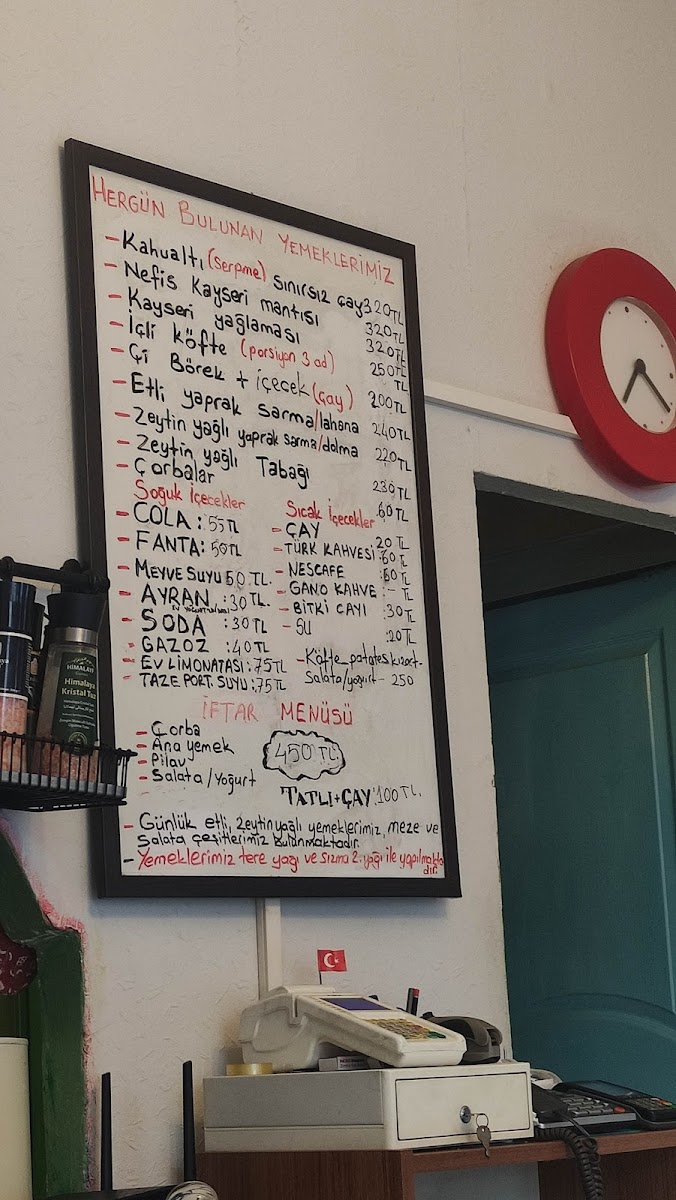 HERGÜN BULUNAN YEMEKLERİMİZ
- Kahvaltı (serpme) sınırsız çay 320TL
- Nefis Kayseri mantısı 320TL
- Kayseri yağlaması 320TL
- İçli köfte (porsiyon 3 ad) 250TL
TL
- Çi Börek + içecek (çay) 200TL
- Etli yaprak sarma/lahana 240TL
- Zeytin yağlı yaprak sarma/dolma 220TL
- Zeytin yağlı Tabağı 230TL
- Çorbalar 60TL
Soğuk İçecekler
- COLA : 55TL
- FANTA : 50TL
- MEYVE SUYU 50 TL.
- AYRAN : 30 TL.
- SODA : 30 TL
- GAZOZ : 40 TL
- EV LİMONATASI : 75TL
- TAZE PORT. SUYU : 75 TL
Sıcak İçecekler
- ÇAY 20 TL
- TÜRK KAHVESİ : 60 TL
- NESCAFE : 60 TL
- GANO KAHVE : - TL
- BİTKİ ÇAYI : 30 TL
- SU : 20 TL
- Köfte_patates kızart-
Salata/yoğurt - 250
İFTAR MENÜSÜ
- Çorba
- Ana yemek
- Pilav
- Salata / Yoğurt
450 TL
TATLI + ÇAY : 100 TL.
- Günlük etli, zeytinyağlı yemeklerimiz, meze ve
salata çeşitlerimiz bulunmaktadır.
- Yemeklerimiz tere yağı ve sızma z.yağı ile yapılmakta
dır.
HİMALAYA
Himalaya
Kristal Tuz